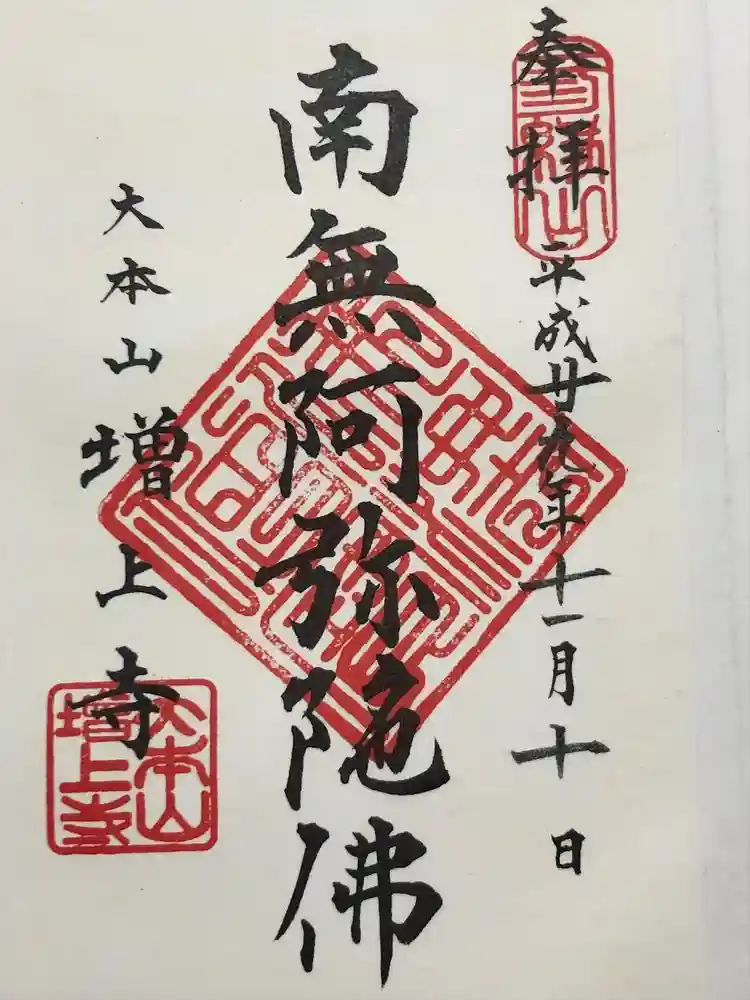 奉拝 平成廿九年十一月十日
南無阿弥陀佛
大本山 増上寺
大本山
増上寺